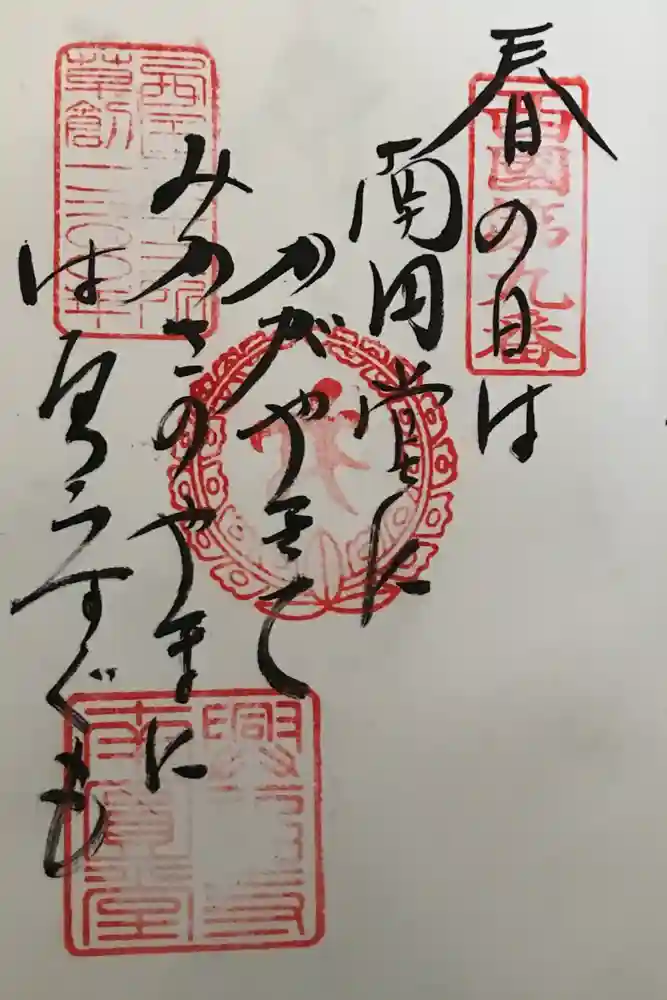 西國第九番
春の日は
南円堂に
かがやきて
みかさのやまに
はるるうすぐも
西国三十三所
草創一三〇〇年
興福寺
南圓堂